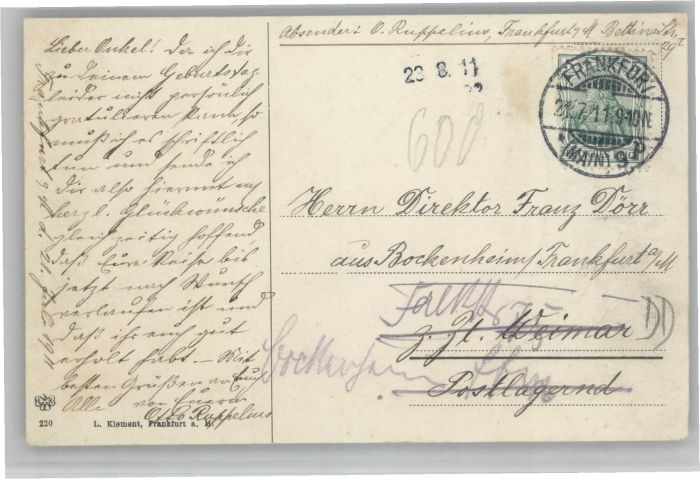 Absender: O. Ruppelius, Frankfurt a/M Bettinastr.
Lieber Onkel! Da ich Dir
zu Deinem Geburtstag
leider nicht persönlich
gratulieren kann, so
muß ich es schriftlich
tun und sende ich
Dir also hiermit
herzl. Glückwünsche
gleichzeitig hoffend
daß Eure Reise bis
jetzt nach Wunsch
verlaufen ist und
daß ihr euch gut
erholt habt. – Mit
besten Grüßen an Euch
Alle von Eurem
Otto Ruppelius
Frankfurt a/M d. 21. Juli 1911
23 8. 11
608
FRANKFURT
21.7.11.9-10N.
(MAIN) 9
Herrn Direktor Franz Dörr
aus Bockenheim/Frankfurt a/M
Falkstr. 75
z. Zt. Weimar
Bockenheim
Postlagernd
220 L. Klement, Frankfurt a. M.